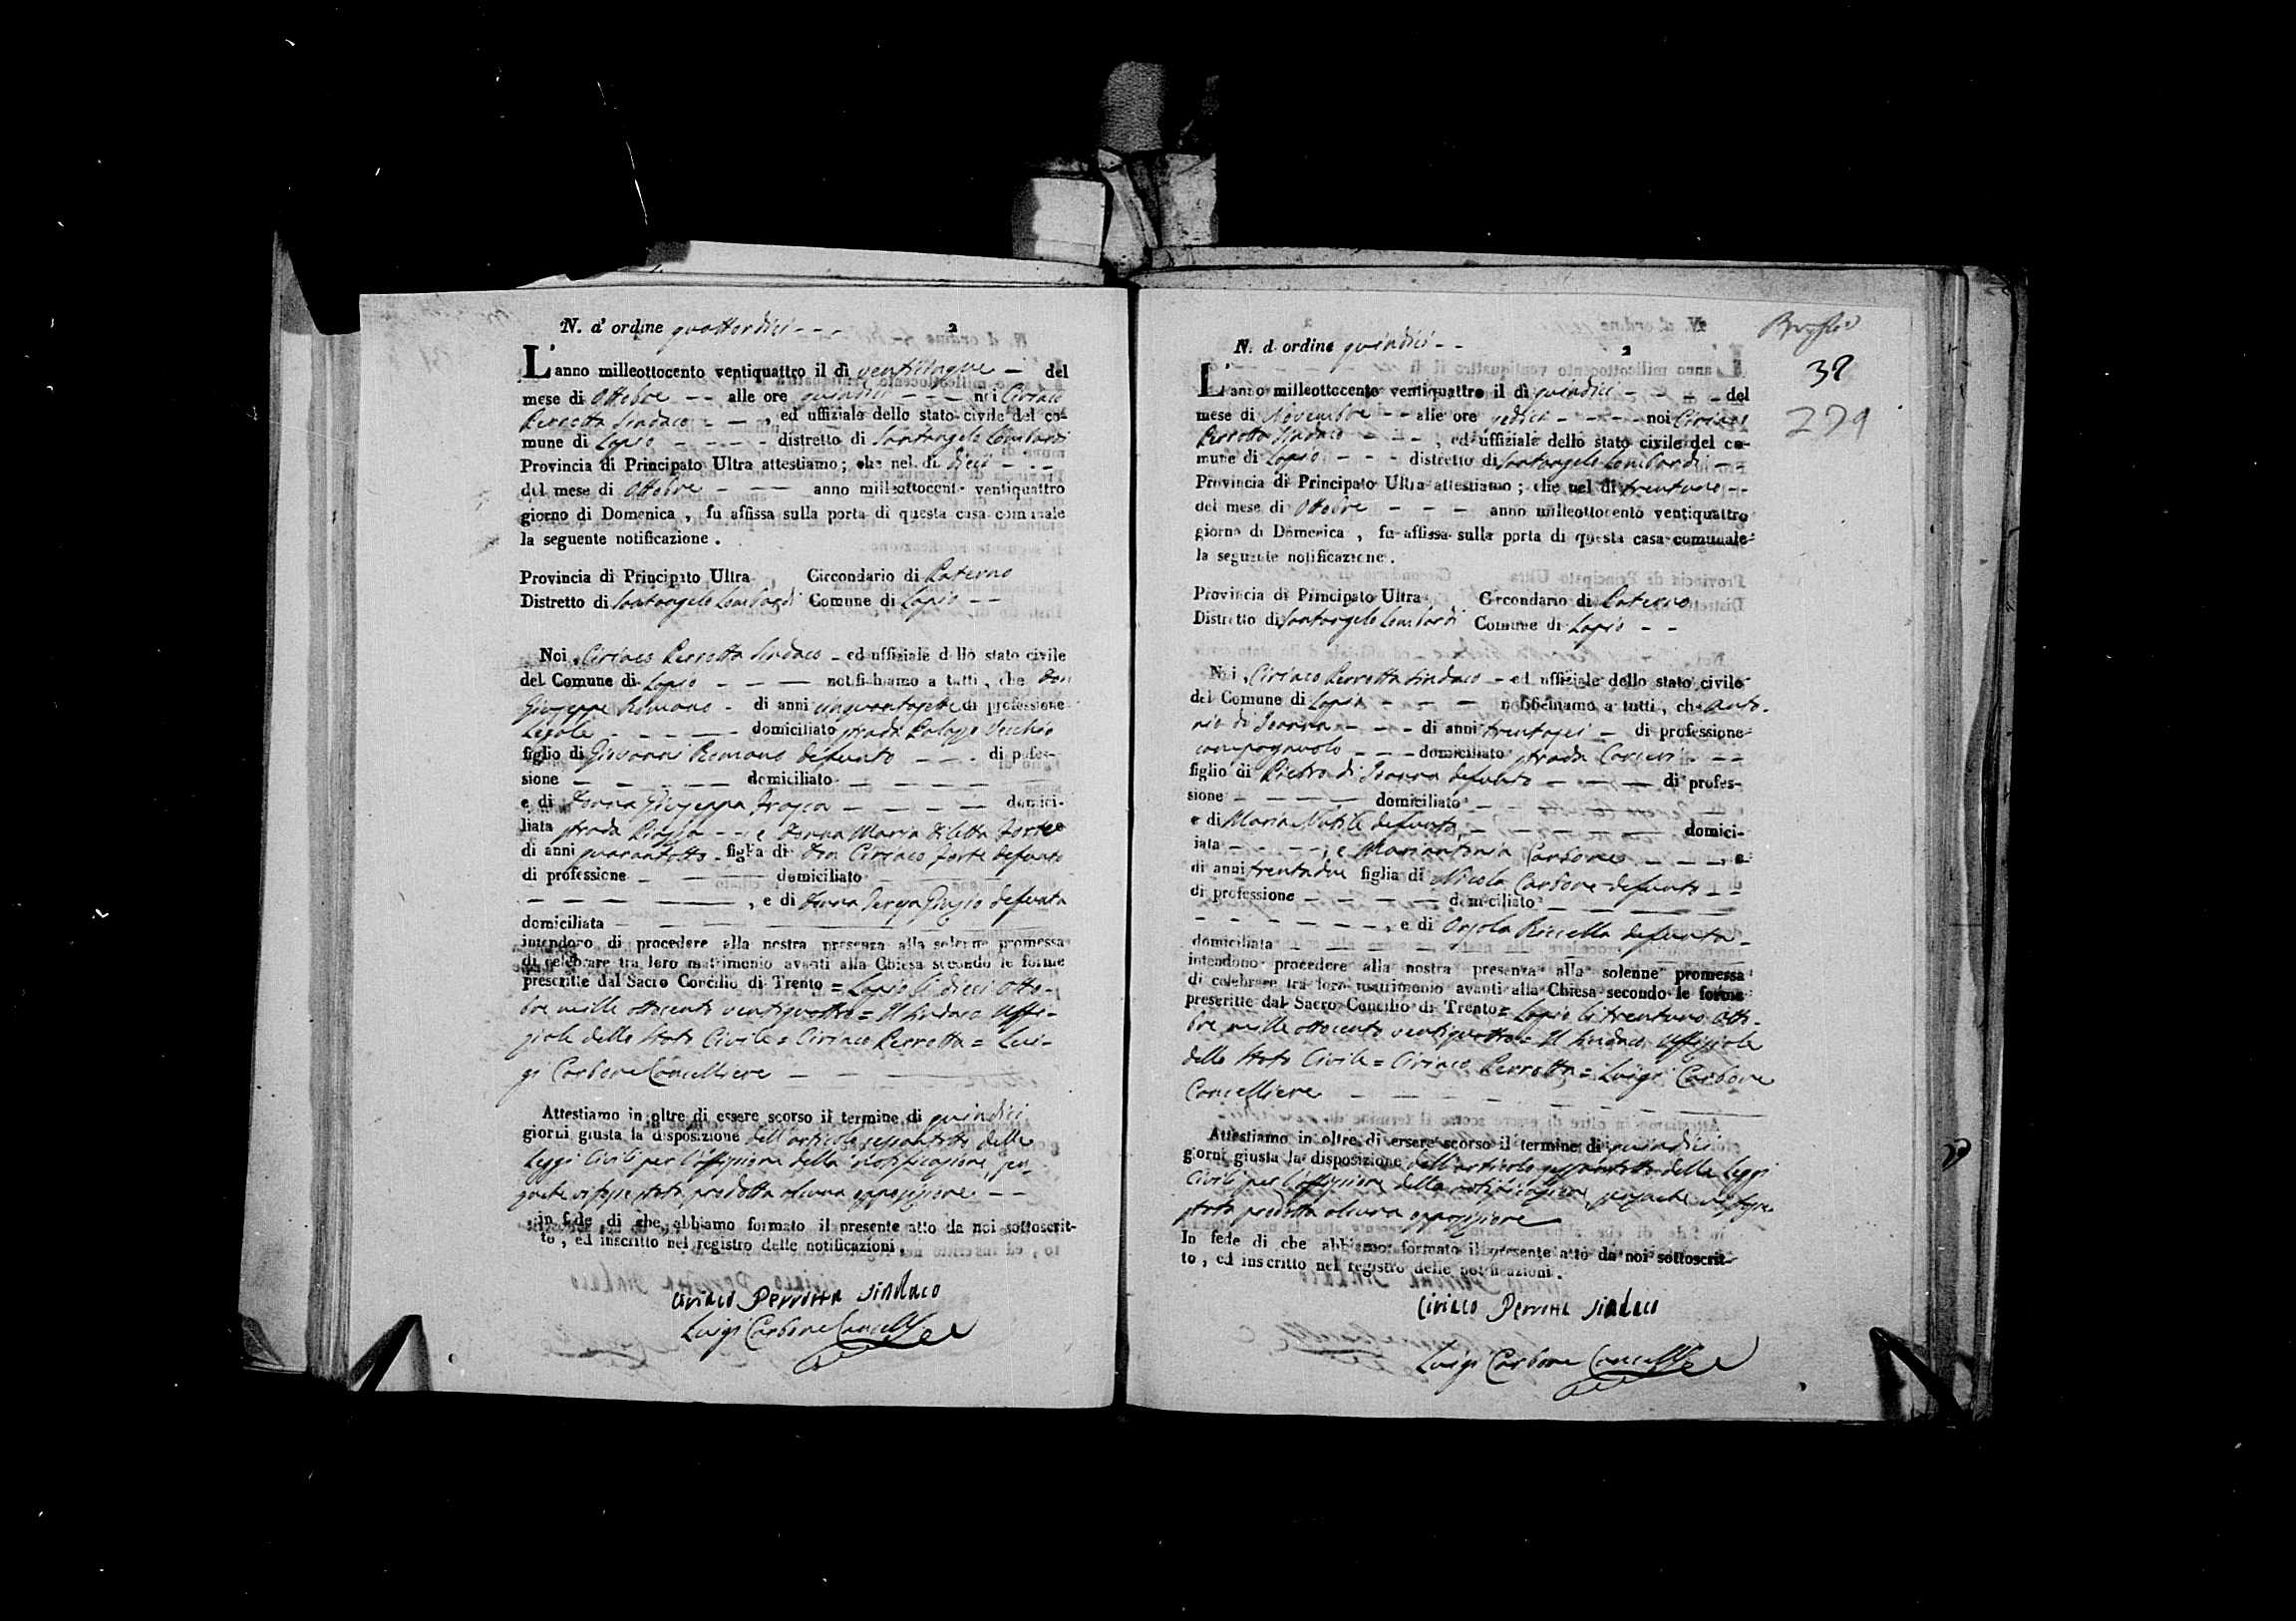 N. d' ordine quattordici - - -
2
L'anno milleottocento ventiquattro il dì venticinque - del
mese di Ottobre - - alle ore quindici - - - noi Ciriaco
Perrotta Sindaco - - -, ed uffiziale dello stato civile del co-
mune di Lapio - - - - distretto di Santangelo Lombardi
Provincia di Principato Ultra attestiamo; che nel dì dieci - - -
del mese di Ottobre - - - anno milleottocento ventiquattro
giorno di Domenica, fu affissa sulla porta di questa casa comunale
la seguente notificazione.
Provincia di Principato Ultra Circondario di Paterno
Distretto di Santangelo Lombardi Comune di Lapio - -
Noi Ciriaco Perrotta Sindaco - ed uffiziale dello stato civile
del Comune di Lapio - - - notifichiamo a tutti, che Don
Giuseppe Romano - di anni cinquantasette di professione
Legale - - - - - domiciliato strada Palazzo Vecchio
figlio di Giovanni Romano defunto - - - di profes-
sione - - - - - domiciliato - - - - -
e di Donna Giuseppa - - - - domici-
liata strada Piazza - - e Donna Maria Diletta Forte
di anni quarantotto - figlia di Don Ciriaco Forte defunto
di professione - - - domiciliato - - -
- - - - -, e di Donna defunta
domiciliata - - - - -
intendono di procedere alla nostra presenza alla solenne promessa
di celebrare tra loro matrimonio avanti alla Chiesa secondo le forme
prescritte dal Sacro Concilio di Trento = Lapio li dieci Otto-
bre mille ottocento ventiquattro = Il Sindaco Uffi-
ziale dello Stato Civile = Ciriaco Perrotta = Lui-
gi Carbone Cancelliere - - -
Attestiamo in oltre di essere scorso il termine di quindici
giorni giusta la disposizione dell'articolo sessantotto delle
Leggi Civili per l'affissione della notificazione, sen-
za che vi fosse stata prodotta alcuna opposizione - -
in fede di che, abbiamo formato il presente atto da noi sottoscrit-
to, ed inscritto nel registro delle notificazioni.
Ciriaco Perrotta Sindaco
Luigi Carbone Cancelle
38
279
N. d. ordine quindici - -
2
L'anno milleottocento ventiquattro il dì quindici - - - - del
mese di Novembre - - alle ore sedici - - - - noi Ciriaco
Perrotta Sindaco - - -, ed uffiziale dello stato civile del co-
mune di Lapio - - - distretto di Santangelo Lombardi -
Provincia di Principato Ultra attestiamo; che nel dì trentuno - -
del mese di Ottobre - - - anno milleottocento ventiquattro
giorno di Domenica, fu affissa sulla porta di questa casa comunale
la seguente notificazione.
Provincia di Principato Ultra Circondario di Paterno
Distretto di Santangelo Lombardi Comune di Lapio - -
Noi, Ciriaco Perrotta Sindaco - ed uffiziale dello stato civile
del Comune di Lapio - - - notifichiamo a tutti, che Anto-
nio di Joanna - - - di anni trentasei - di professione
campagnuolo - - - domiciliato strada Carceri - - -
figlio di Pietro di Joanna defunto - - - di profes-
sione - - - - domiciliato - - -
e di Maria Nutile defunta, - - - - - domici-
liata - - - -, e Mariantonia Carbone - - -, e
di anni trentadue figlia di Nicola Carbone defunto - -
di professione - - - - domiciliato - - - -
- - - - - -, e di Orsola defunta -
domiciliata - - - - -
intendono procedere alla nostra presenza alla solenne promessa
di celebrare tra loro matrimonio avanti alla Chiesa secondo le forme
prescritte dal Sacro Concilio di Trento = Lapio li trentuno Otto-
bre mille ottocento ventiquattro = Il Sindaco Uffiziale
dello Stato Civile = Ciriaco Perrotta = Luigi Carbone
Cancelliere - - - - - -
Attestiamo in oltre di essere scorso il termine di quindici
giorni giusta la disposizione dell'articolo sessantotto delle Leggi
Civili per l'affissione della notificazione, senza che vi fosse
stata prodotta alcuna opposizione
In fede di che abbiamo formato il presente atto da noi sottoscrit-
to, ed inscritto nel registro delle notificazioni.
Ciriaco Perrotta Sindaco
Luigi Carbone Cancelle